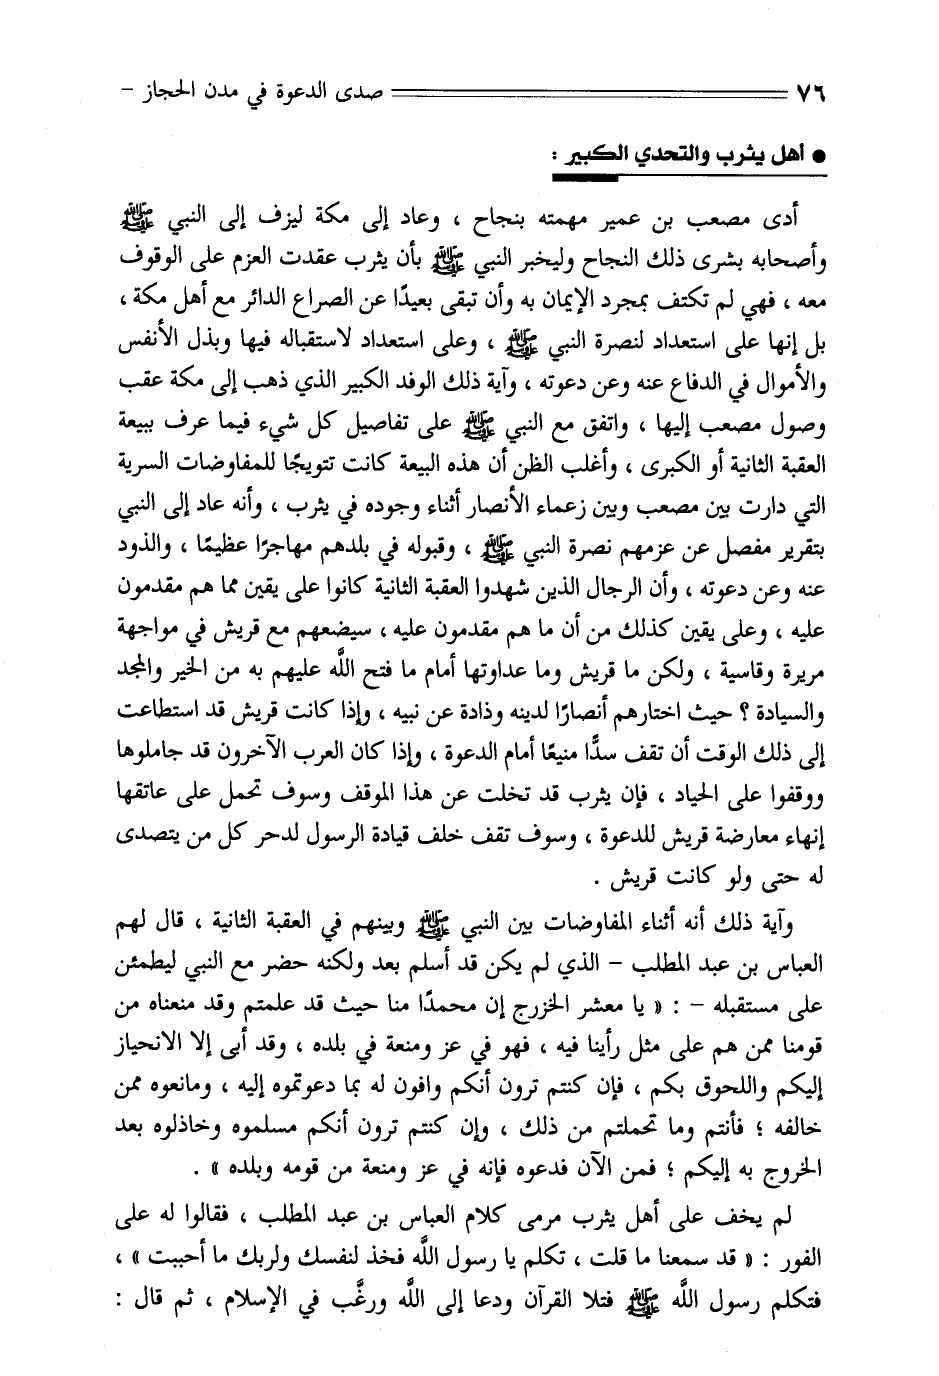 ٧٦ صدى الدعوة في مدن الحجاز –
● أهل يثرب والتحدي الكبير :
أدى مصعب بن عمير مهمته بنجاح ، وعاد إلى مكة ليزف إلى النبي ﷺ
وأصحابه بشرى ذلك النجاح وليخبر النبي ﷺ بأن يثرب عقدت العزم على الوقوف
معه ، فهي لم تكتف بمجرد الإيمان به وأن تبقى بعيدًا عن الصراع الدائر مع أهل مكة ،
بل إنها على استعداد لنصرة النبي ﷺ ، وعلى استعداد لاستقباله فيها وبذل الأنفس
والأموال في الدفاع عنه وعن دعوته ، وآية ذلك الوفد الكبير الذي ذهب إلى مكة عقب
وصول مصعب إليها ، واتفق مع النبي ﷺ على تفاصيل كل شيء فيما عرف ببيعة
العقبة الثانية أو الكبرى ، وأغلب الظن أن هذه البيعة كانت تتويجًا للمفاوضات السرية
التي دارت بين مصعب وبين زعماء الأنصار أثناء وجوده في يثرب ، وأنه عاد إلى النبي
بتقرير مفصل عن عزمهم نصرة النبي ﷺ ، وقبوله في بلدهم مهاجرًا عظيمًا ، والذود
عنه وعن دعوته ، وأن الرجال الذين شهدوا العقبة الثانية كانوا على يقين مما هم مقدمون
عليه ، وعلى يقين كذلك من أن ما هم مقدمون عليه ، سيضعهم مع قريش في مواجهة
مريرة وقاسية ، ولكن ما قريش وما عداوتها أمام ما فتح اللَّه عليهم به من الخير والمجد
والسيادة ؟ حيث اختارهم أنصارًا لدينه وذادة عن نبيه ، وإذا كانت قريش قد استطاعت
إلى ذلك الوقت أن تقف سدًّا منيعًا أمام الدعوة ، وإذا كان العرب الآخرون قد جاملوها
ووقفوا على الحياد ، فإن يثرب قد تخلت عن هذا الموقف وسوف تحمل على عاتقها
إنهاء معارضة قريش للدعوة ، وسوف تقف خلف قيادة الرسول لدحر كل من يتصدى
له حتى ولو كانت قريش .
وآية ذلك أنه أثناء المفاوضات بين النبي ﷺ وبينهم في العقبة الثانية ، قال لهم
العباس بن عبد المطلب – الذي لم يكن قد أسلم بعد ولكنه حضر مع النبي ليطمئن
على مستقبله – : « يا معشر الخزرج إن محمدًا منا حيث قد علمتم وقد منعناه من
قومنا ممن هم على مثل رأينا فيه ، فهو في عز ومنعة في بلده ، وقد أبى إلا الانحياز
إليكم واللحوق بكم ، فإن كنتم ترون أنكم وافون له بما دعوتموه إليه ، ومانعوه ممن
خالفه ؛ فأنتم وما تحملتم من ذلك ، وإن كنتم ترون أنكم مسلموه وخاذلوه بعد
الخروج به إليكم ؛ فمن الآن فدعوه فإنه في عز ومنعة من قومه وبلده » .
لم يخف على أهل يثرب مرمى كلام العباس بن عبد المطلب ، فقالوا له على
الفور : « قد سمعنا ما قلت ، تكلم يا رسول اللَّه فخذ لنفسك ولربك ما أحببت » ،
فتكلم رسول اللَّه ﷺ فتلا القرآن ودعا إلى اللَّه ورغَّب في الإسلام ، ثم قال :